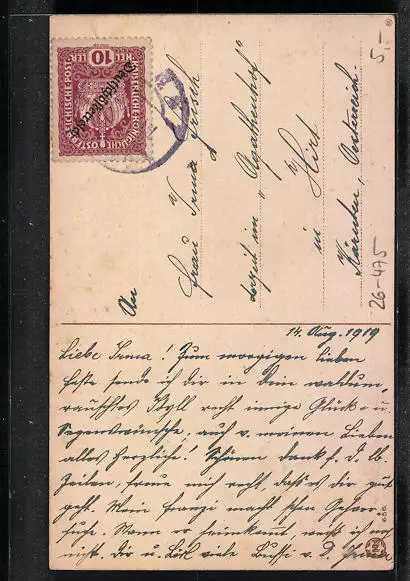 KAISERLICHE KÖNIGLICHE ÖSTERREICHISCHE POST
10 HELLER 10
Deutschösterreich
An
Frau Irma
derzeit im „Agathenhof"
in
Hirt
Kärnten, Österreich.
5,-
26-475
14. Aug. 1919
Liebe Irma! Zum morgigen lieben
Feste sende ich Dir in Dein waldum-
rauschtes Idyll recht innige Glück- u.
Segenswünsche, auch v. meinen Lieben
alles Herzliche! Schönen Dank f. d. lb.
Zeilen, freue mich recht, dass es Dir gut
geht. Mein Franzi macht schon Gehver-
suche. Wann er heimkommt, weiß ich noch
nicht. Dir u. viele Bussi v. D.